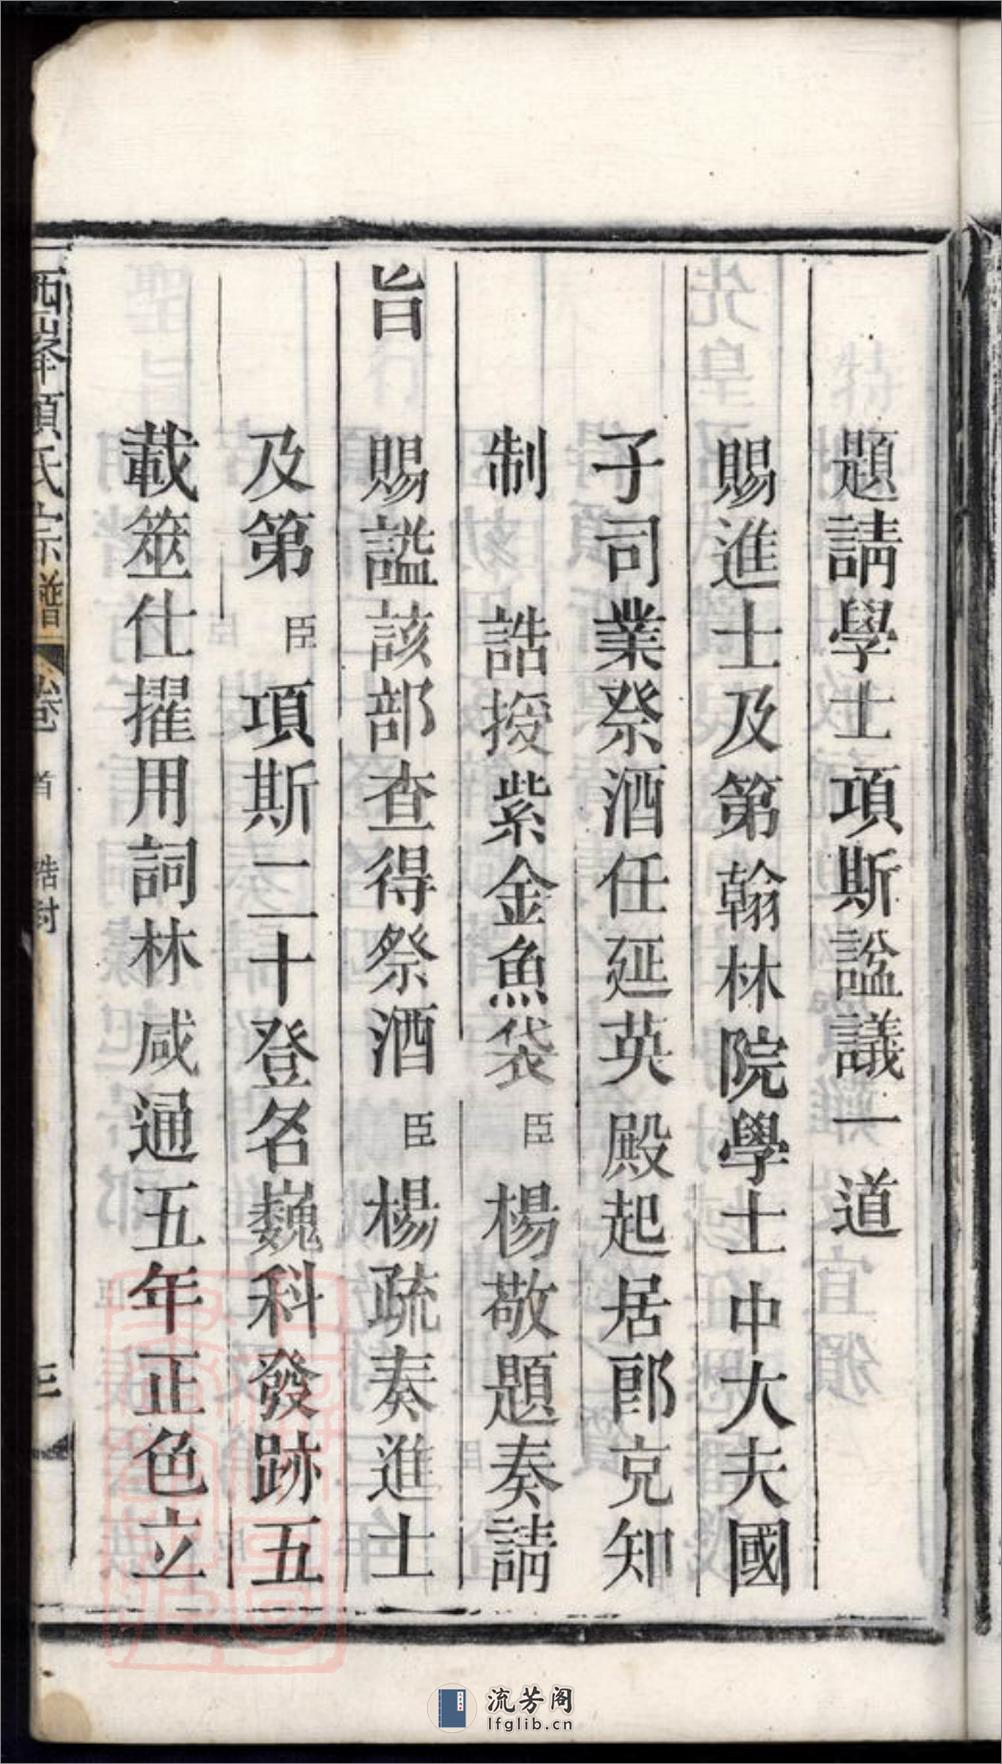 題請學士項斯諡議一道
賜進士及第翰林院學士中大夫國
子司業祭酒任延英殿起居郎克知
制 誥授紫金魚袋 臣 楊敬題奏請
旨
賜謚該部查得祭酒 臣 楊疏奏進士
及第 臣 項斯二十登名巍科發跡五
載筮仕擢用詞林咸通五年正色立
項氏宗譜 卷 首 誥封 三
流芳阁
lfglib.cn